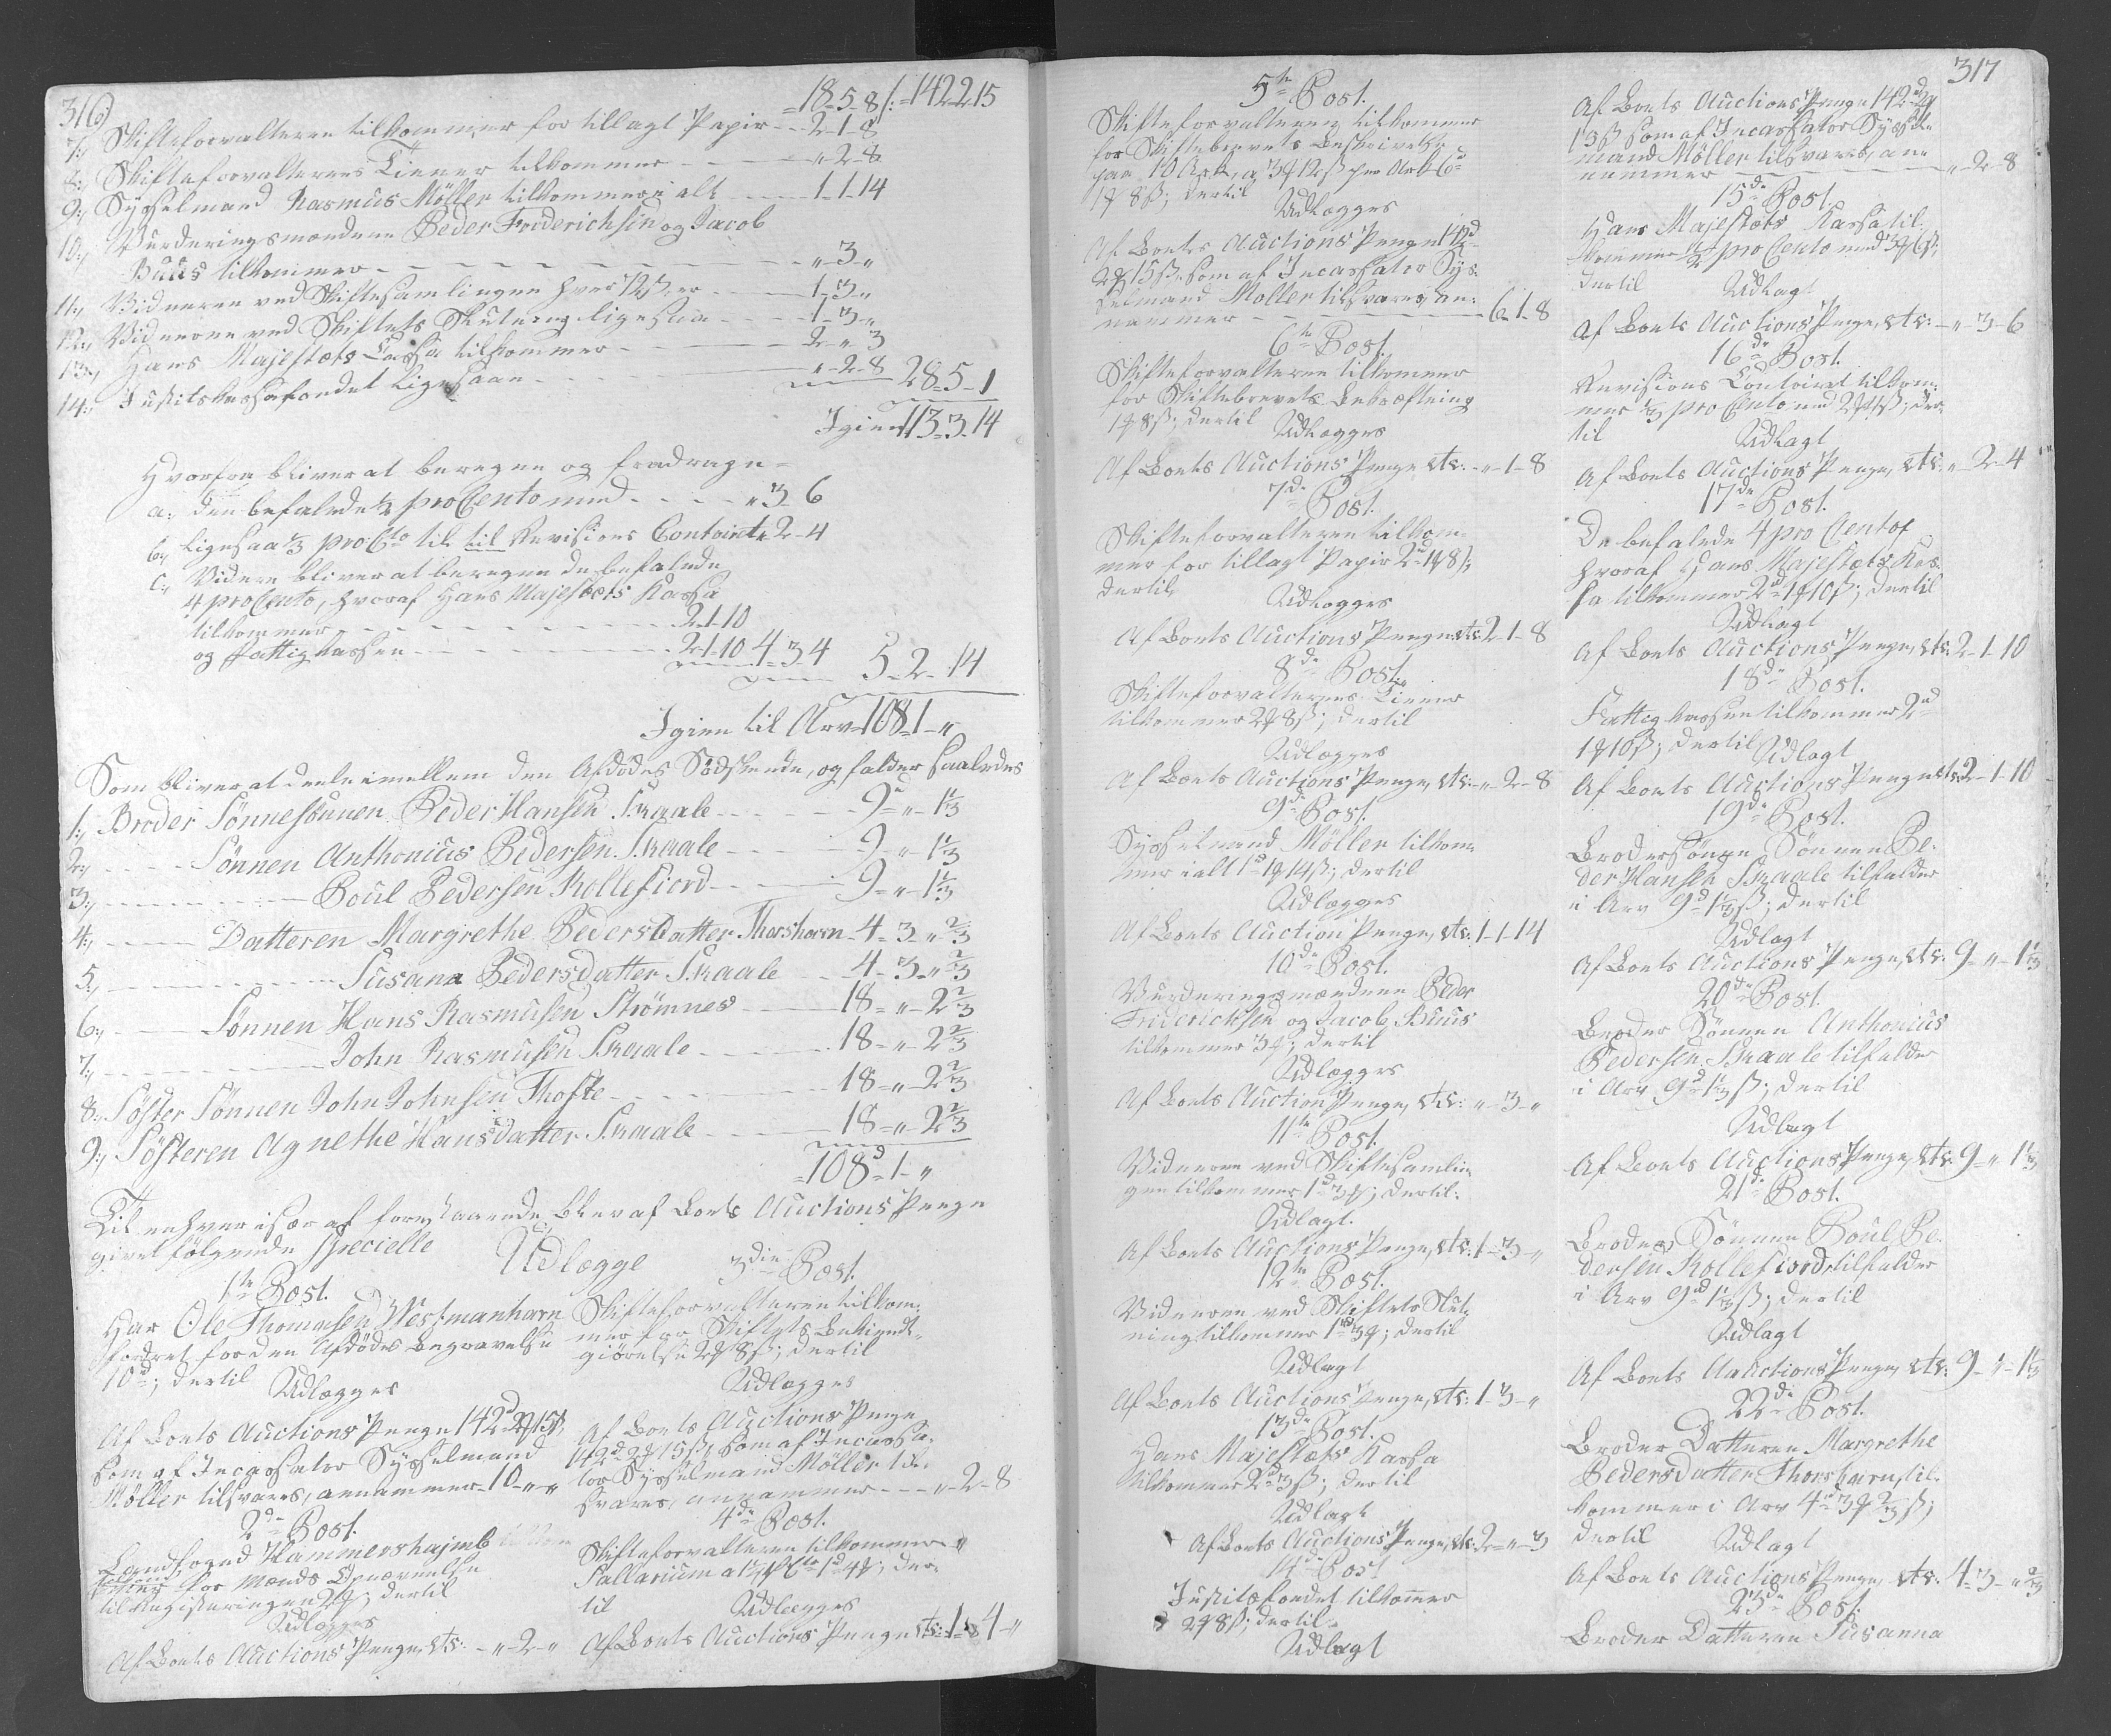 316)
= 18-5-8 /: = 142-2-15
7:, Skifteforvalteren tilkommer for tillagt Papir - - 2-1-8
8:, Skifteforvalterens Tiener tilkommer - - - " 2-8
9:, Sysselmand Rasmus Möller tilkommer i alt - - - 1-1-14
10:, Vurderingsmændene Peder Friderichsen og Jacob
Buus tilkommer - - - " 3 "
11:, Vidnerne ved Skiftesamlingen hver 12 ß, er - - - 1-3-"
12:, Vidnerne ved Skiftets Slutning ligesaa - - - 1-3-"
13:, Hans Majestæts Cassa tilkommer - - - 2 " 3
14:, Justitskassafondet ligesaa - - - " 2-8 28-5-1
Igien 113-3-14
Hvorfra bliver at beregne og fradrage =
a:, den befalede 1/2 pro Cento med - - - " 3-6
b:, ligesaa 1/3 pro Cto til til Revisions Contoiret " 2-4
c:, Videre bliver at beregne de befalede
4 pro Cento, hvoraf Hans Majestæts Kassa
tilkommer - - - 2-1-10
og Fattigkassen - - - 2-1-10 4-3-4 5-2-14
Igien til Arv = 108-1-"
Som bliver at deele imellem den Afdödes Södskende, og falder saaledes
1:, Broder Sönnesönnen Peder Hansen Skaale - - - 9d " - 1 1/3
2:, - - - Sönnen Anthonius Pedersen Skaale - - - 9 - " - 1 1/3
3:, - - - Poul Pedersen Kollefiord - - - 9 - " - 1 1/3
4:, - - - Datteren Margrethe Pedersdatter Thorshavn - 4 - 3 - " 2/3
5:, - - - Susana Pedersdatter Skaale - - 4 - 3 - " 2/3
6:, - - - Sönnen Hans Rasmusen Strömnes - - - 18 - " - 2 2/3
7:, - - - John Rasmusen Skaale - - - 18 - " - 2 2/3
8:, Söster Sönnen John Johnsen Thofte - - - 18 - " 2 2/3
9:, Sösteren Agnethe Hansdatter Skaale - - - 18 - " 2 2/3
= 108d 1 - "
Til enhver især af forestaaende blev af Boets Auctions Penge
givet fölgende specielle
Udlægge
1te Post.
Har Ole Thomasen Westmanhavn
fordret for den Afdödes Begravelse
10d; dertil
Udlægges
Af Boets Auctions Penge 142d 2 15 ß,
som af Incassator Sysselmand
Möller tilsvares, annammer 10 - " "
2de Post.
Landfoged Hammershajmb
for Mænds Opnævnelse
til Registeringen 2; dertil
Udlægges
Af Boets Auctions Penge etc: - " - 2 - "
3die Post.
Skifteforvalteren tilkom:
mer for Skiftets Bekiendt:
giörelse 2 8 ß; dertil
Udlægges
Af Boets Auctions Penge
142d 2 15 ß, som af Incassa:
tor Sysselmand Möller til:
svares, annammer - - - " - 2 - 8
4de Post.
Skifteforvalteren tilkommer
Sallarium a 1 p Cto 1d 4; der:
til
Udlægges
Af Boets Auctions Penge etc: 1 - 4 - "
5te Post.
Skifteforvalteren tilkommer
for Skiftebrevets Beskrivelse
paa 10 Ark, a 3 12 ß per Ark 6d
1 8 ß; dertil
Udlægges
Af Boets Auctions Penge 142d
2 15 ß, som af Incassator Sys:
selmand Möller tilsvares, an:
nammer - - - 6-1-8
6te Post.
Skifteforvalteren tilkommer
for Skiftebrevets Bekræftning
1 8 ß; dertil
Udlægges
Af Boets Auctions Penge etc: - " - 1 - 8
7de Post.
Skifteforvalteren tilkom:
mer for tillagt Papir 2d 1 8 ß;
dertil
Udlægges
Af Boets Auctions Penge etc: 2-1-8
8de Post.
Skifteforvalterens Tiener
tilkommer 2 8 ß; dertil
Udlægges
Af Boets Auctions Penge, etc: - " - 2 - 8
9de Post.
Sysselmand Möller tilkom:
mer i alt 1d 1 14 ß; dertil
Udlægges
Af Boets Auction Penge, etc: 1-1-14
10de Post.
Vurderingsmændene Peder
Fridericksen og Jacob Buus
tilkommer 3; dertil
Udlægges
Af Boets Auction Penge, etc: - " - 3 - "
11te Post.
Vidnerne ved Skiftesamlin:
gen tilkommer 1d 3; dertil:
Udlagt.
Af Boets Auctions Penge, etc: 1-3-"
12te Post.
Vidnerne ved Skiftets Slut:
ning tilkommer 1d 3; dertil
Udlagt
Af Boets Auctions Penge, etc: 1-3-"
13de Post.
Hans Majestæts Kassa
tilkommer 2d 3 ß; dertil
Udlagt
Af Boets Auctions Penge, etc: 2 - " - 3
14de Post
Justitsfondet tilkommer
2 8 ß; dertil
Udlagt
317
Af Boets Auctions Penge 142d 2
15 ß som af Incassator Syssel:
mand Möller tilsvares, an:
nammer - - - " - 2 - 8
15de Post.
Hans Majestæts Kassa til:
kommer 1/2 pro Cento med 3 6 ß;
dertil
Udlagt
Af Boets Auctions Penge, etc: - " - 3 - 6
16de Post.
Revisions Contoiret tilkom:
mer 1/3 pro Cento med 2 4 ß; der:
til
Udlagt
Af Boets Auctions Penge, etc: " - 2 - 4
17de Post.
De befalede 4 pro Cento,
hvoraf Hans Majestæts Kas:
sa tilkommer 2d 1 10 ß; dertil
Udlagt
Af Boets Auctions Penge, etc: 2-1-10
18de Post.
Fattigkassen tilkommer 2d
1 10 ß; dertil
Udlagt
Af Boets Auctions Penge etc: 2-1-10
19de Post.
Brodersönne Sönnen Pe:
der Hansen Skaale tilfalder
i Arv 9d 1 1/3 ß; dertil
Udlagt
Af Boets Auctions Penge, etc: 9 - " - 1 1/3
20de Post.
Broder Sönnen Anthonius
Pedersen Skaale tilfalder
i Arv 9d 1 1/3 ß; dertil
Udlagt
Af Boets Auctions Penge, etc: 9 - " 1 1/3
21de Post.
Broder Sönnen Poul Pe:
dersen Kollefiord, tilfalder
i Arv 9d 1 1/3 ß; dertil
Udlagt
Af Boets Auctions Penge, etc: 9 - " - 1 1/3
22de Post.
Broder Datteren Margrethe
Pedersdatter Thorshavn, til:
kommer i Arv 4d 3 2/3 ß;
dertil
Udlagt
Af Boets Auctions Penge etc: 4 - 3 - " 2/3
23de Post.
Broder Datteren Susanna